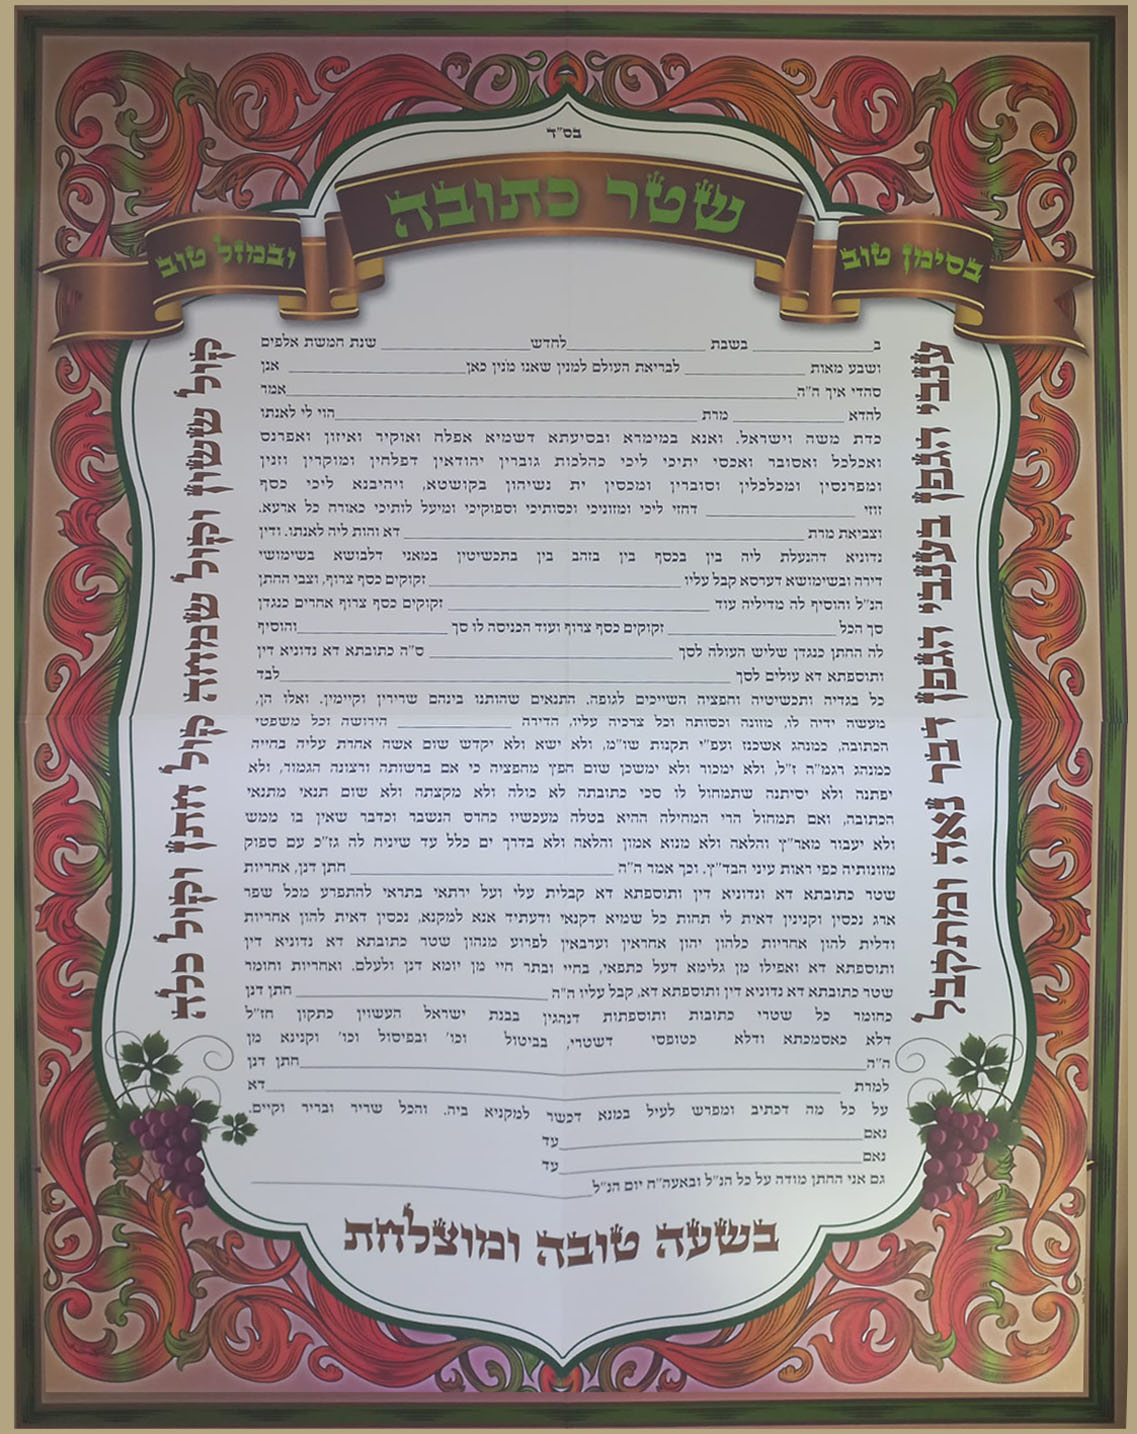 בס"ד
שטר כתובה
בסימן טוב
ובמזל טוב
ענבי הגפן בענבי הגפן דבר נאה ומתקבל
ב______ בשבת ______ לחדש ______ שנת חמשת אלפים
ושבע מאות ______ לבריאת העולם למנין שאנו מנין כאן ______ אנן
סהדי איך ה"ה ______ אמר
להדא ______ מרת ______ הוי לי לאנתו
כדת משה וישראל. ואנא במימרא ובסיעתא דשמיא אפלח ואוקיר ואיזון ואפרנס
ואכלכל ואסובר ואכסי יתיכי ליכי כהלכות גוברין יהודאין דפלחין ומוקרין וזנין
ומפרנסין ומכלכלין וסוברין ומכסין ית נשיהון בקושטא, ויהיבנא ליכי כסף
זוזי ______ דחזי ליכי ומזוניכי וכסותיכי וספוקיכי ומיעל לותיכי כאורח כל ארעא.
וצביאת מרת ______ דא והות ליה לאנתו. ודין
נדוניא דהנעלת ליה בין בכסף בין בזהב בין בתכשיטין במאני דלבושא בשימושי
דירה ובשימושא דערסא קבל עליו ______ זקוקים כסף צרוף, וצבי החתן
הנ"ל והוסיף לה מדיליה עוד ______ זקוקים כסף צרוף אחרים כנגדן
סך הכל ______ זקוקים כסף צרוף ועוד הכניסה לו סך ______ והוסיף
לה החתן כנגדן שליש העולה לסך ______ ס"ה כתובתא דא נדוניא דין
ותוספתא דא עולים לסך ______ לבד
כל בגדיה ותכשיטיה וחפציה השייכים לגופה. התנאים שהותנו ביניהם שרירין וקיימין. ואלו הן,
מעשה ידיה לו, מזונה וכסותה וכל צרכיה עליו, הדירה ______ הירושה וכל משפטי
הכתובה, כמנהג אשכנז ועפ"י תקנות שו"מ, ולא ישא ולא יקדש שום אשה אחרת עליה בחייה
כמנהג רגמ"ה ז"ל, ולא ימכור ולא ימשכן שום חפץ מחפציה כי אם ברשותה ורצונה הגמור, ולא
יפתנה ולא יסיתנה שתמחול לו סכי כתובתה לא כולה ולא מקצתה ולא שום תנאי מתנאי
הכתובה, ואם תמחול הרי המחילה ההיא בטלה מעכשיו כחרס הנשבר וכדבר שאין בו ממש
ולא יעבור מאר"ץ והלאה ולא מנוא אמון והלאה ולא בדרך ים כלל עד שיניח לה גז"כ עם ספוק
מזונותיה כפי ראות עיני הבד"ץ. וכך אמר ה"ה ______ חתן דנן, אחריות
שטר כתובתא דא ונדוניא דין ותוספתא דא קבלית עלי ועל ירתאי בתראי להתפרע מכל שפר
ארג נכסין וקנינין דאית לי תחות כל שמיא דקנאי ודעתיד אנא למקנא, נכסין דאית להון אחריות
ודלית להון אחריות כלהון יהון אחראין וערבאין לפרוע מנהון שטר כתובתא דא נדוניא דין
ותוספתא דא ואפילו מן גלימא דעל כתפאי, בחיי ובתר חיי מן יומא דנן ולעלם. ואחריות וחומר
שטר כתובתא דא נדוניא דין ותוספתא דא, קבל עליו ה"ה ______ חתן דנן
כחומר כל שטרי כתובות ותוספתות דנהגין בבנת ישראל העשוין כתקון חז"ל
דלא כאסמכתא ודלא כטופסי דשטרי, בביטול וכו' ובפיסול וכו' וקנינא מן
ה"ה ______ חתן דנן
למרת ______ דא
על כל מה דכתיב ומפרש לעיל במנא דכשר למקניא ביה. והכל שריר ובריר וקיים.
נאם ______ עד
נאם ______ עד
גם אני החתן מודה על כל הנ"ל ובאעה"ח יום הנ"ל ______
קול ששון וקול שמחה קול חתן וקול כלה
בשעה טובה ומוצלחת